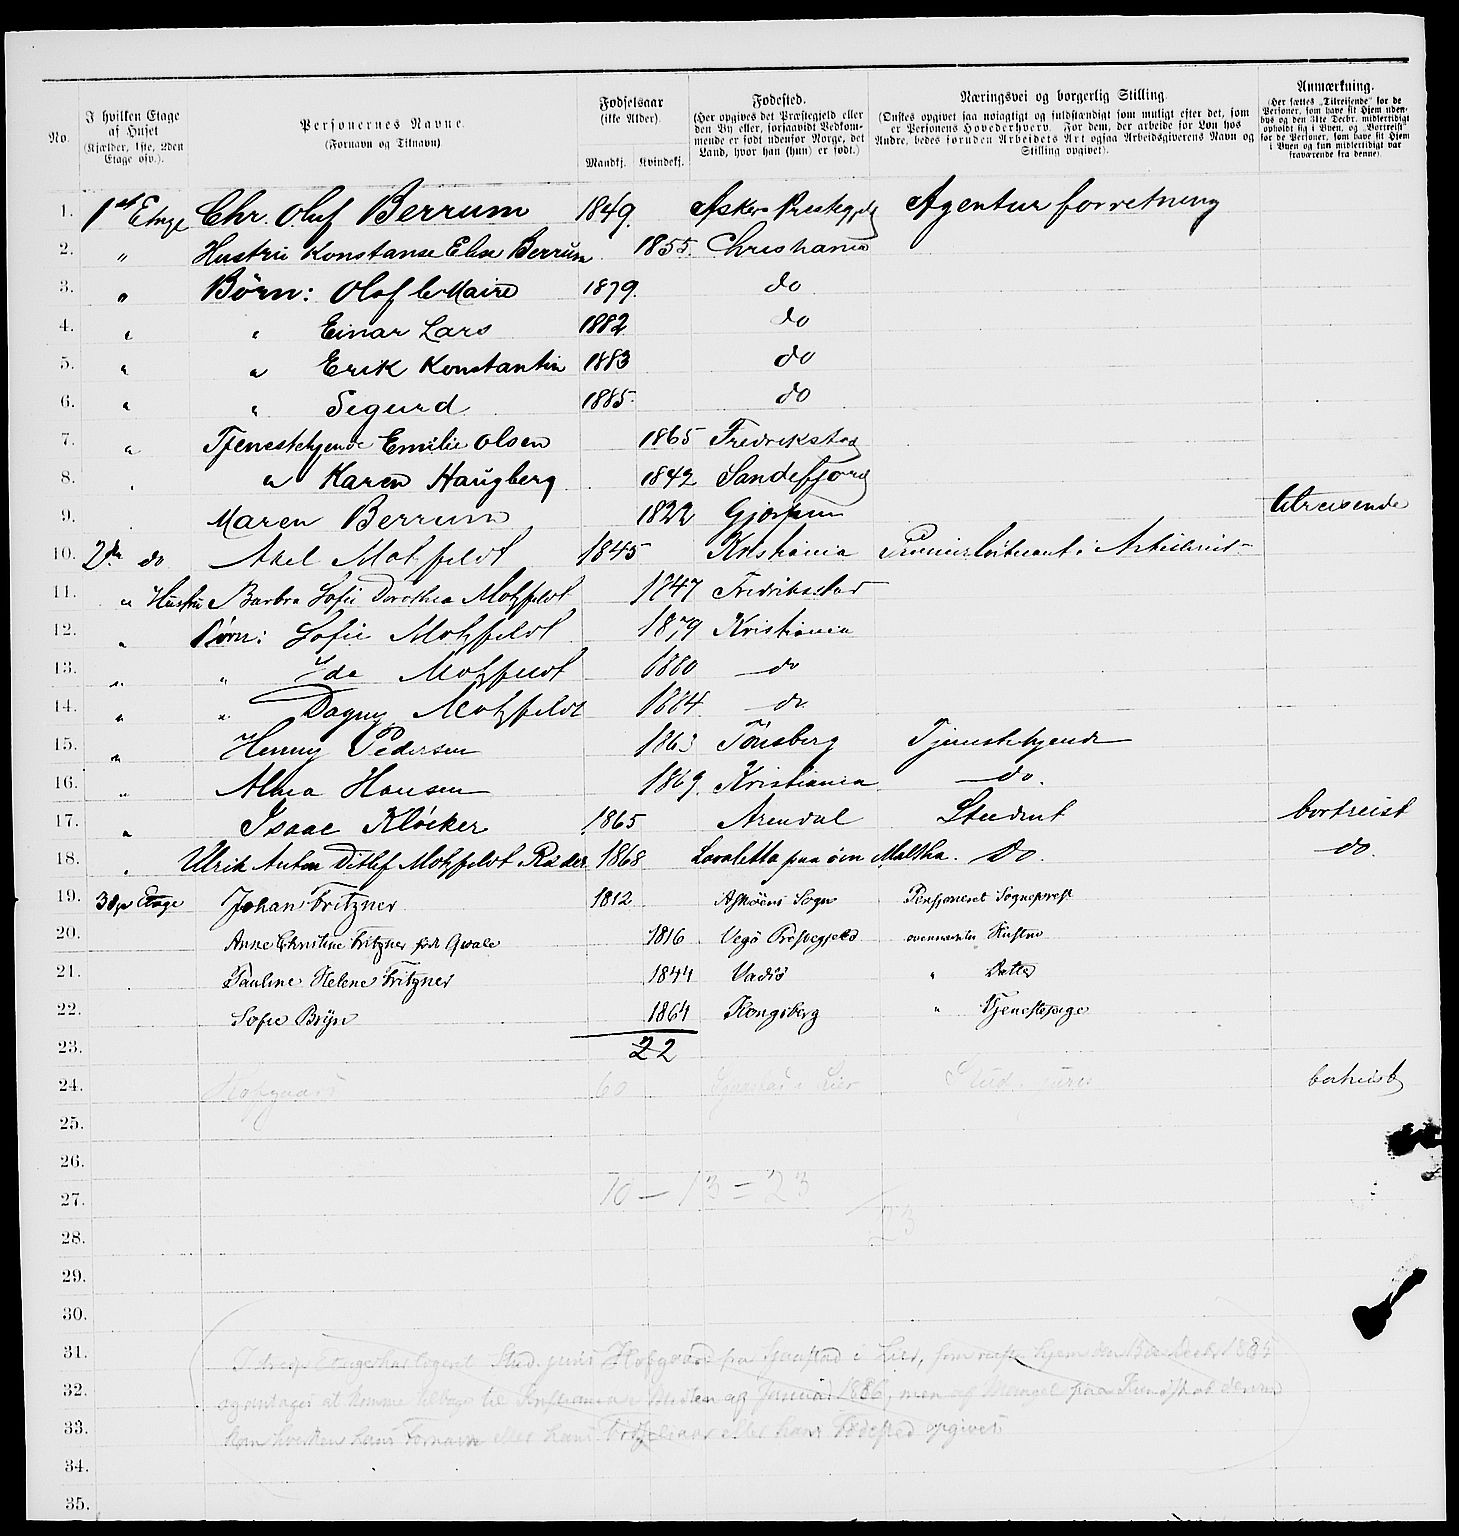 No.
I hvilken Etage af Huset (Kjælder, 1ste, 2den Etage osv.).
Personernes Navne. (Fornavn og Tilnavn)
Fødselsaar (ikke Alder). Mandkj. Kvindekj.
Fødested. (Her opgives det Præstegjeld eller den By eller, forsaavidt Vedkommende er født udenfor Norge, det Land, hvor han (hun) er født.)
Næringsvei og borgerlig Stilling. (Ønskes opgivet saa nøiagtigt og fuldstændigt som muligt efter det, som er Personens Hovederhverv. For dem, der arbeide for Løn hos Andre, bedes foruden Arbeidets Art ogsaa Arbeidsgiverens Navn og Stilling opgivet).
Anmærkning. (Her sættes „Tilreisende“ for de Personer, som have sit Hjem udenbys og den 31te Decbr. midlertidigt opholdt sig i Byen, og „Bortreist“ for de Personer, som have sit Hjem i Byen og kun midlertidigt var fraværende fra denne).
1. 1st Etage Chr. Oluf Berrum 1849. Asker Prestegjeld Agentur forretning
2. " Hustru Konstanse Elise Berrum. 1855. Christiania
3. " Børn: Olaf le Maire 1879. do
4. " " Einar Lars 1882 do
5. " " Erik Konstantin 1883 do
6. " " Sigurd 1885. do
7. " Tjenestepige Emilie Olsen 1865 Fredrikstad
8. " " Karen Haugberg 1842 Sandefjord
9. Maren Berrum 1822 Gjerpen tilreisende
10. 2den do Axel Motzfeldt 1845 Kristiania Premierløitnant i Artilleriet
11. " Hustru Barbra Sofie Dorothea Motzfeldt 1847 Fredrikstad
12. " Børn: Sofie Motzfeldt 1879 Kristiania
13. " " Ida Motzfeldt 1880 do
14. " " Dagny Motzfeldt 1884. do.
15. " Henny Pedersen 1863 Tönsberg Tjenestepige
16. " Alma Hansen 1869. Kristiania do.
17. " Isaac Klöcker 1865 Arendal Student bortreist
18. " Ulrik Anton Ditlef Motzfeldt Räder. 1868 Lavaletta paa öen Maltha. Do. do.
19. 3die Etage Johan Fritzner 1812 Askøens Sogn Pensjoneret Sogneprest
20. Anne Christine Fritzner født Qvale 1816 Vegö Præstegjeld ovennævntes Hustru
21. Pauline Helene Fritzner 1844 Vadsö " Datter
22. Sofie Bryn 1864 Kongsberg " Tjenestepige
23. 22
24. Hofgaard 60 Sjaastad i Lier Stud. juris bortreist
25.
26.
27. 10 — 13 = 23
28. 23
29.
30.
31. I tredje Etage har logeret Stud. juris Hofgaard fra Sjaastad i Lier, som reiste hjem den Decbr 1885
32. og antages at komme tilbage til Kristiania i Midten af Januar 1886, men af Mangel paa Kundskab derom
33. kan hverken hans Fornavn eller hans Fødselsaar eller hans Fødested opgives
34.
35.